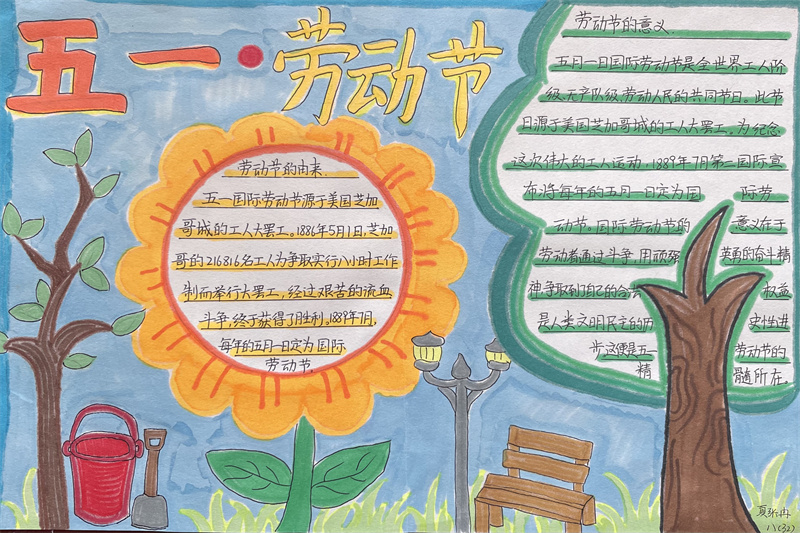 五一·劳动节
劳动节的由来.
五一国际劳动节源于美国芝加
哥城的工人大罢工。1886年5月1日,芝加
哥的216816名工人为争取实行八小时工作
制而举行大罢工,经过艰苦的流血
斗争,终于获得了胜利。1889年7月,
每年的五月一日定为国际
劳动节.
劳动节的意义.
五月一日国际劳动节是全世界工人阶
级,无产队级,劳动人民的共同节日。此节
日源于美国芝加哥城的工人大罢工,为纪念
这次伟大的工人运动,1889年7月第二国际宣
布将每年的五月一日实为国 际劳
动节。国际劳动节的 意义在于
劳动者通过斗争,用顽强 英勇的奋斗精
神争取到了自己的合 权益
是人类文明民主的历 史性进
步,这便是五一 劳动节的
精 髓所在.
八(32)